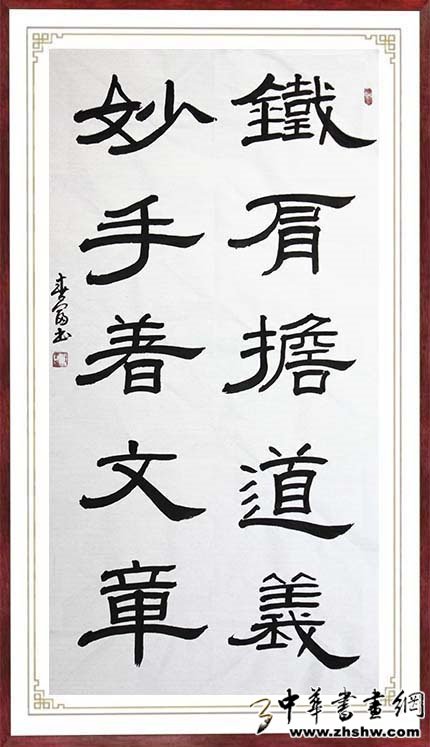 鐵肩擔道義
妙手着文章
春富书
中華書畫網
www.zhshw.com